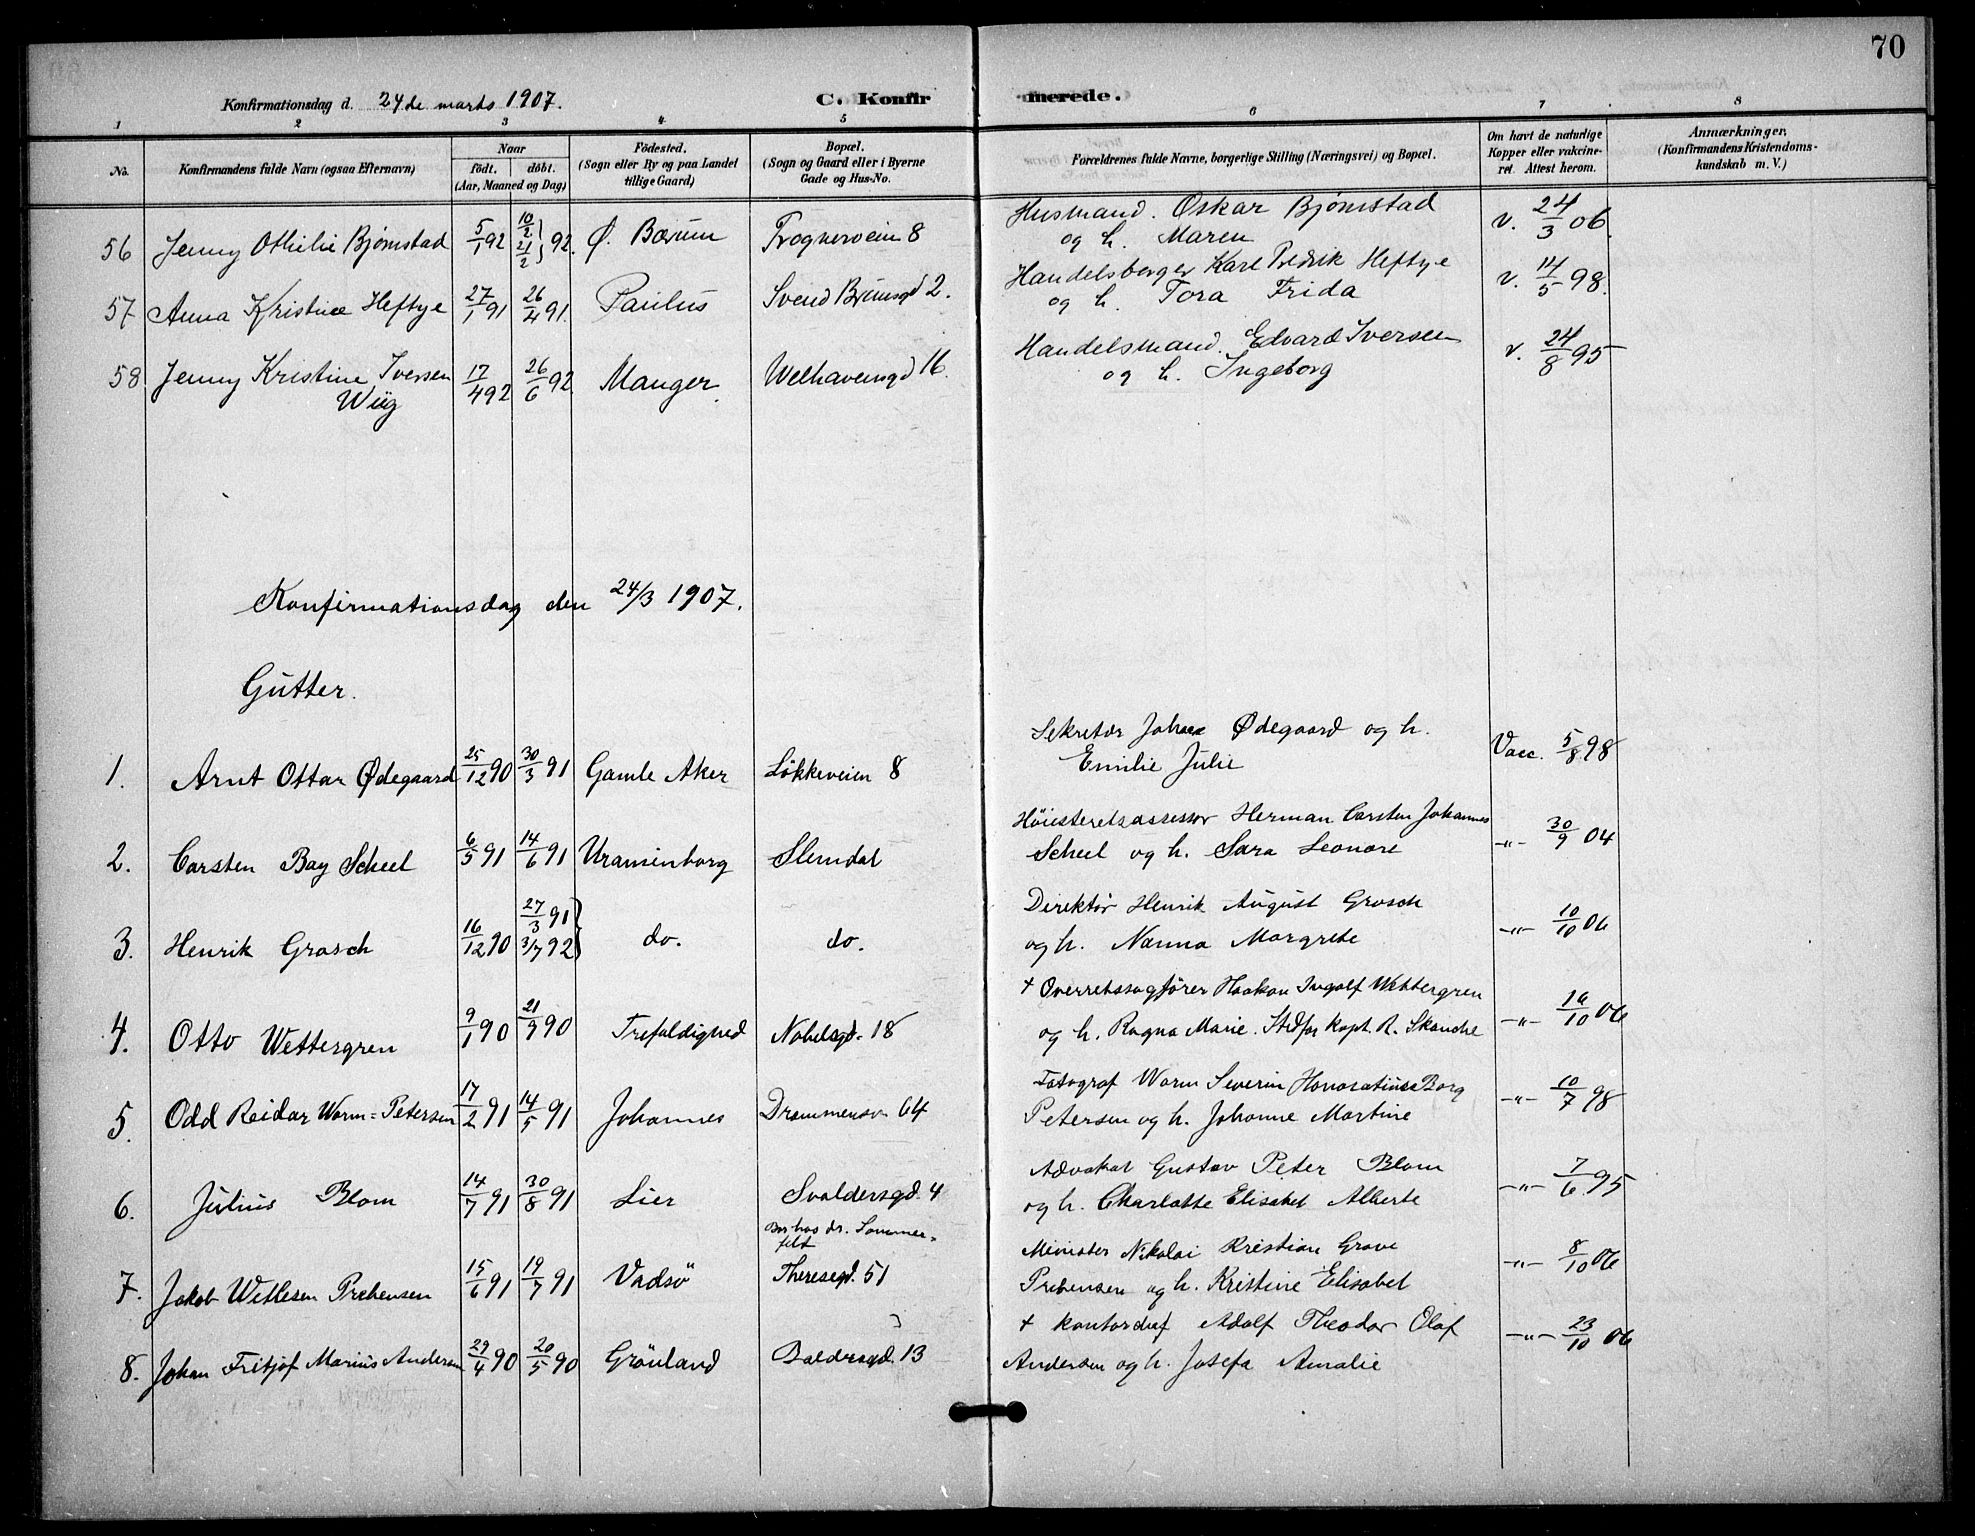 70
Konfirmationsdag d. 24de marts 1907. C. Konfirmerede.
1 2 3 4 5 6 7 8
No. Konfirmandens fulde Navn (ogsaa Efternavn) Naar født. døbt. (Aar, Maaned og Dag) Fødested. (Sogn eller By og paa Landet tillige Gaard) Bopæl. (Sogn og Gaard eller i Byerne Gade og Hus-No. Forældrenes fulde Navne, borgerlige Stilling (Næringsvei) og Bopæl. Om havt de naturlige Kopper eller vakcineret. Attest herom. Anmærkninger. (Konfirmandens Kristendomskundskab m. V.)
56 Jenny Othilie Bjørnstad 5/1 92 10/2 21/2 } 92. Ø. Bærum Frognerveien 8 Husmand. Oskar Bjørnstad v. 24/3 06.
og h. Maren
57 Anna Kristine Heftye 27/1 91 26/4 91. Paulus Svend Brunsgd 2. Handelsborger Karl Fredrik Heftye v. 14/5 98.
og h. Tora Frida
58 Jenny Kristine Iversen 17/4 92 26/6 92 Manger. Welhavensgd 16. Handelsmand. Edvard Iversen v. 24/8 95
Wiig og h. Ingeborg
Konfirmationsdag den 24/3 1907.
Gutter.
1. Arnt Ottar Ødegaard 25/12 90 30/3 91 Gamle Aker Løkkeveien 8 Sekretær Johan Ødegaard og h. Vacc. 5/8 98
Emilie Julie
2. Carsten Bay Scheel 6/5 91 14/6 91 Uranienborg Slemdal Høiesteretsassessor Herman Carsten Johannes -"- 30/9 04
Scheel og h. Sara Leonore
3. Henrik Grosch 16/12 90 27/3 91 3/7 92 } do. do. Direktør Henrik August Grosch -"- 10/10 06
og h. Nanna Margrete
4. Otto Wettergren 9/1 90 21/9 90 Trefoldighed Nobelsgd. 18 + Overretssagfører Haakon Ingolf Wettergren -"- 16/10 06
og h. Ragna Marie. Stedfar kapt. R. Skanche
5. Odd Reidar Worm=Petersen 17/2 91 14/5 91 Johannes Drammensv 64 Fotograf Worm Severin Honoratius Borg -"- 10/7 98
Petersen og h. Johanne Martine
6. Julius Blom 14/7 91 30/8 91 Lier Svoldersgd. 4 Advokat Gustav Peter Blom -"- 7/6 95
og h. Charlotte Elisabet Alberte
7. Jakob Wetlesen Prebensen 15/6 91 19/7 91 Vadsö Bor hos dr. Sommerfelt Theresegd. 51 Minister Nikolai Kristian Grove -"- 8/10 06
Prebensen og h. Kristine Elisabet
8. Johan Fritjof Marius Andersen 29/4 90 20/5 90 Grönland Baldersgd. 13 + kontorchef Adolf Theodor Olaf -"- 23/10 06
Andersen og h. Josefa Amalie